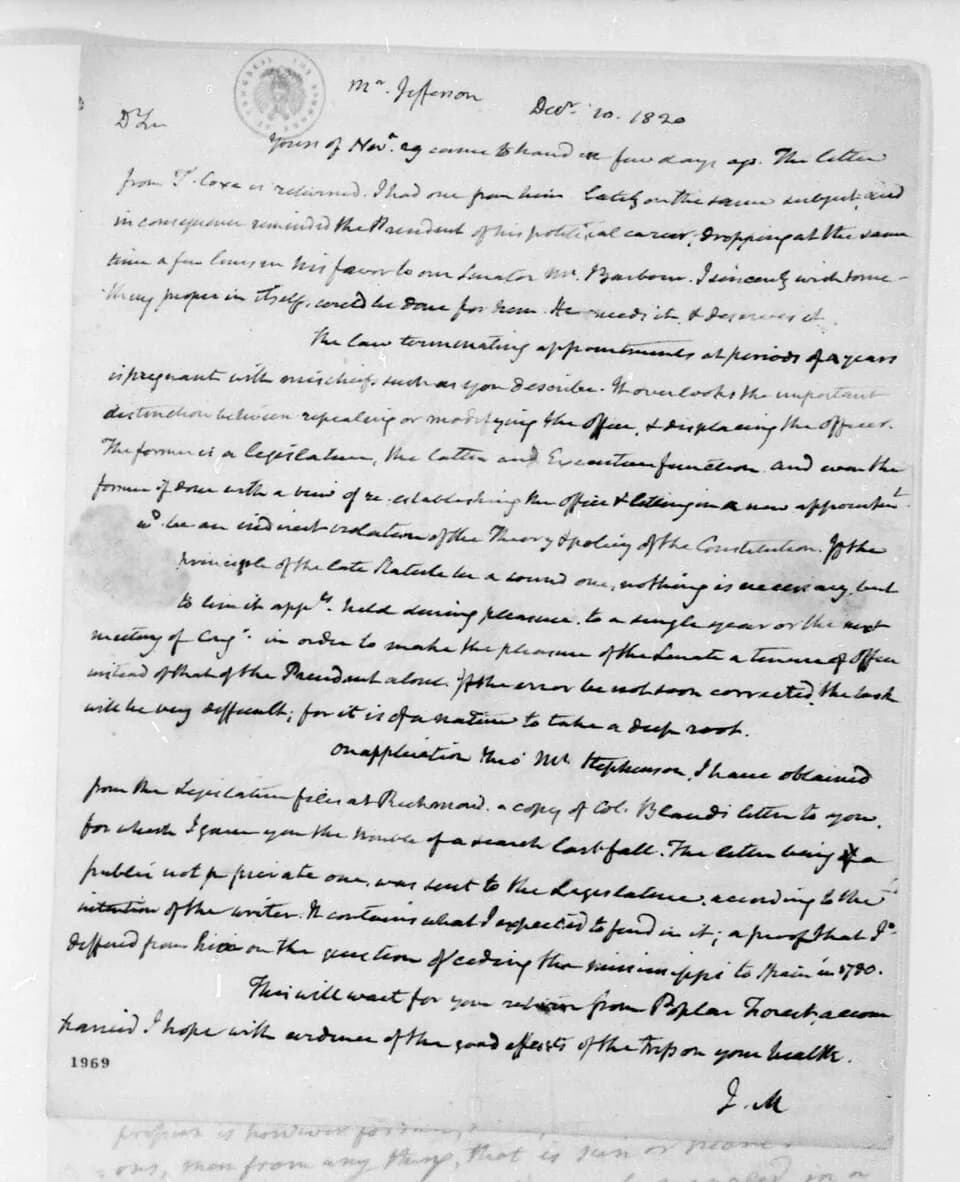 Mr. Jefferson
Decr. 10. 1820
Dr Sir
Yours of Novr. 29 came to hand a few days ago. The letter
from T. Coxe is returned. I had one from him lately on the same subject, and
in consequence reminded the President of his political career; dropping at the same
time a few lines in his favor to our Senator Mr. Barbour. I sincerely wish some-
thing proper in itself, could be done for him. He needs it & deserves it.
The law terminating appointments at periods of 4 years
is pregnant with mischiefs such as you describe. It overlooks the important
distinction between repealing or modifying the office, & displacing the officer.
The former is a Legislative, the latter an Executive function. and even the
former if done with a view of re-establishing the office & letting in a new appointmt.
wd. be an indirect violation of the Theory & policy of the Constitution. If the
principle of the late Statute be a sound one, nothing is necessary but
to limit appts. held during pleasure. to a single year or the next
meeting of Congs. in order to make the pleasure of the Senate a tenure of office
instead of that of the President alone. If the error be not soon corrected, the task
will be very difficult; for it is of a nature to take a deep root.
On application thro' Mr. Stephenson, I have obtained
from the Legislative files at Richmond. a copy of Col. Bland's letter to you,
for which I gave you the trouble of a search last fall. The letter being a
public not private one, was sent to the Legislature, according to the
intention of the writer. It contains what I expected to find in it; a proof that I
differed from him on the question of ceding the Mississippi to Spain in 1780.
This will wait for your return from Poplar Forest, accom
panied I hope with evidence of the good effects of the trip on your health.
J. M
1969
ons, man from any thing, that is